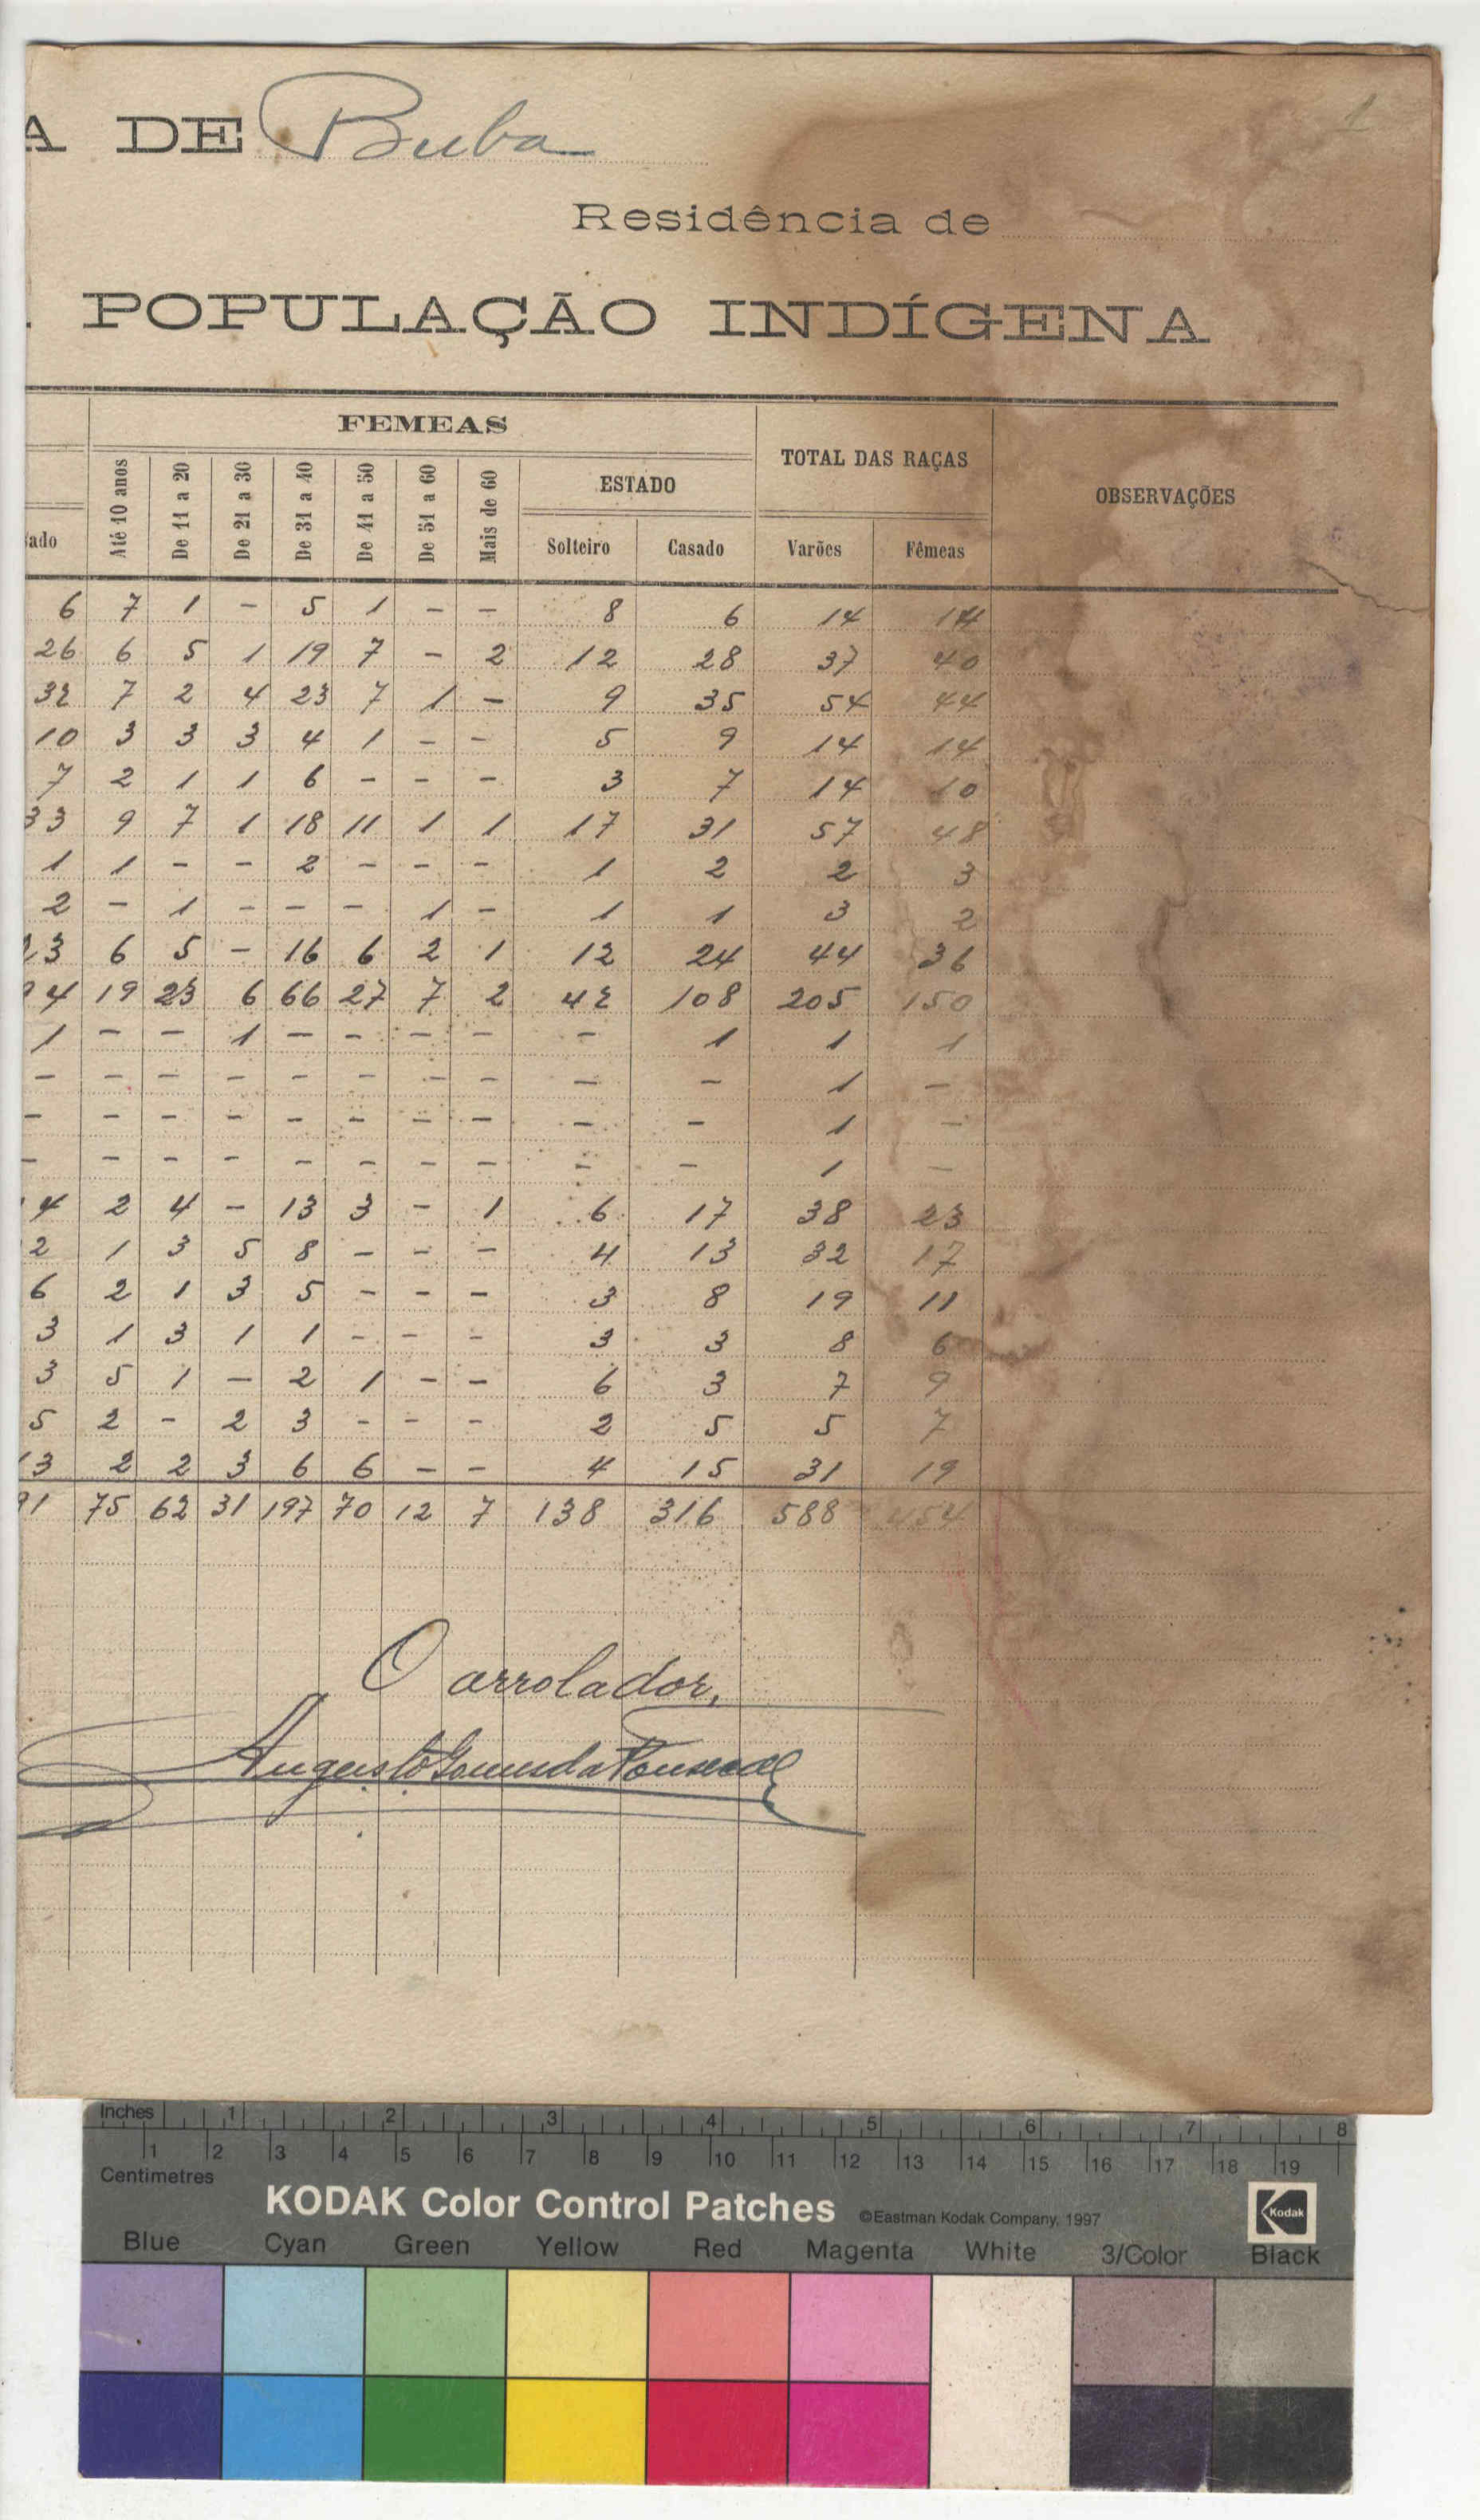 A DE Buba
1
Residência de
POPULAÇÃO INDÍGENA
FEMEAS
TOTAL DAS RAÇAS
OBSERVAÇÕES
ESTADO
ado Até 10 anos De 11 a 20 De 21 a 30 De 31 a 40 De 41 a 50 De 51 a 60 Mais de 60 Solteiro Casado Varões Fêmeas
6 7 1 - 5 1 - - 8 6 14 14
26 6 5 1 19 7 - 2 12 28 37 40
32 7 2 4 23 7 1 - 9 35 54 44
10 3 3 3 4 1 - - 5 9 14 14
7 2 1 1 6 - - - 3 7 14 10
33 9 7 1 18 11 1 1 17 31 57 48
1 1 - - 2 - - - 1 2 2 3
2 - 1 - - - 1 - 1 1 3 2
23 6 5 - 16 6 2 1 12 24 44 36
94 19 23 6 66 27 7 2 42 108 205 150
1 - - 1 - - - - - 1 1 1
- - - - - - - - - - 1 -
- - - - - - - - - - 1 -
- - - - - - - - - - 1 -
4 2 4 - 13 3 - 1 6 17 38 23
2 1 3 5 8 - - - 4 13 32 17
6 2 1 3 5 - - - 3 8 19 11
3 1 3 1 1 - - - 3 3 8 6
3 5 1 - 2 1 - - 6 3 7 9
5 2 - 2 3 - - - 2 5 5 7
13 2 2 3 6 6 - - 4 15 31 19
91 75 62 31 197 70 12 7 138 316 588 454
O arrolador,
Augusto Gomes da Fonseca
Inches 1 2 3 4 5 6 7 8
1 2 3 4 5 6 7 8 9 10 11 12 13 14 15 16 17 18 19
Centimetres
KODAK Color Control Patches ©Eastman Kodak Company, 1997 Kodak
Blue Cyan Green Yellow Red Magenta White 3/Color Black